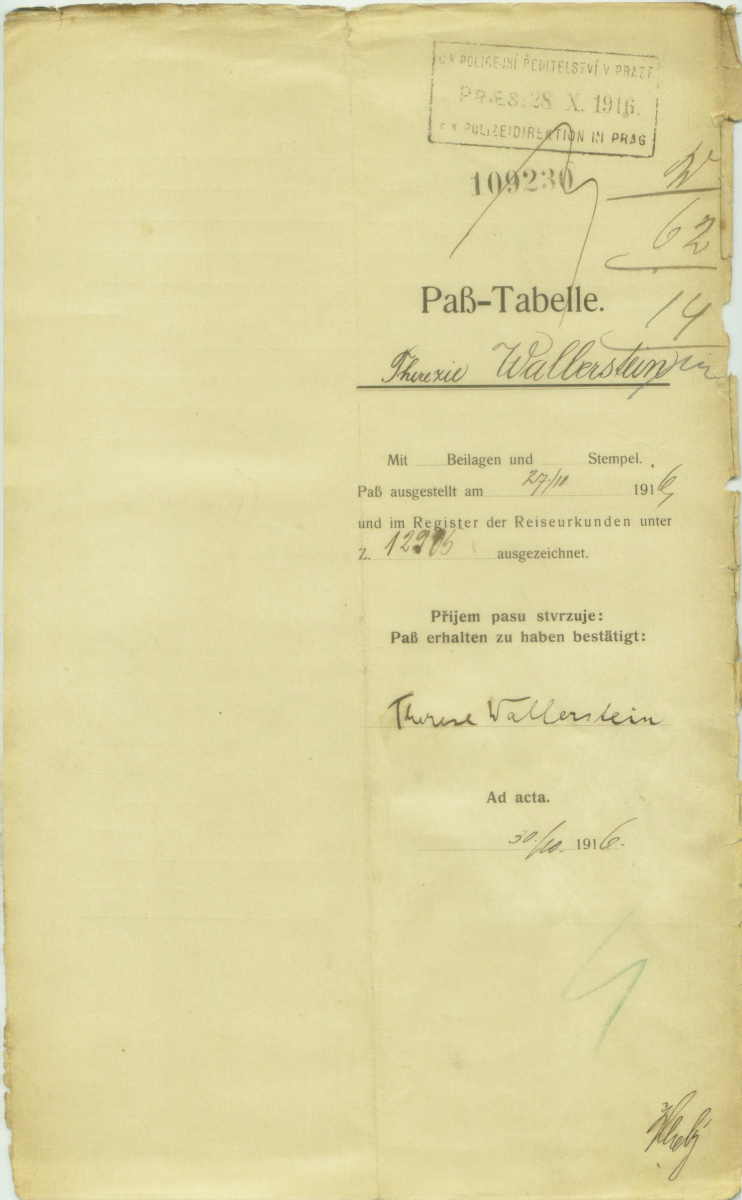 C.K. POLICEJNÍ ŘEDITELSTVÍ V PRAZE
PRAES. 28 X. 1916.
C.K. POLIZEIDIREKTION IN PRAG
109230
62
14
Paß-Tabelle.
Therezie Wallerstein
Mit Beilagen und Stempel.
Paß ausgestellt am 27/10 1916
und im Register der Reiseurkunden unter
Z. ausgezeichnet.
Přijem pasu stvrzuje:
Paß erhalten zu haben bestätigt:
Therese Wallerstein
Ad acta.
30/10. 1916.